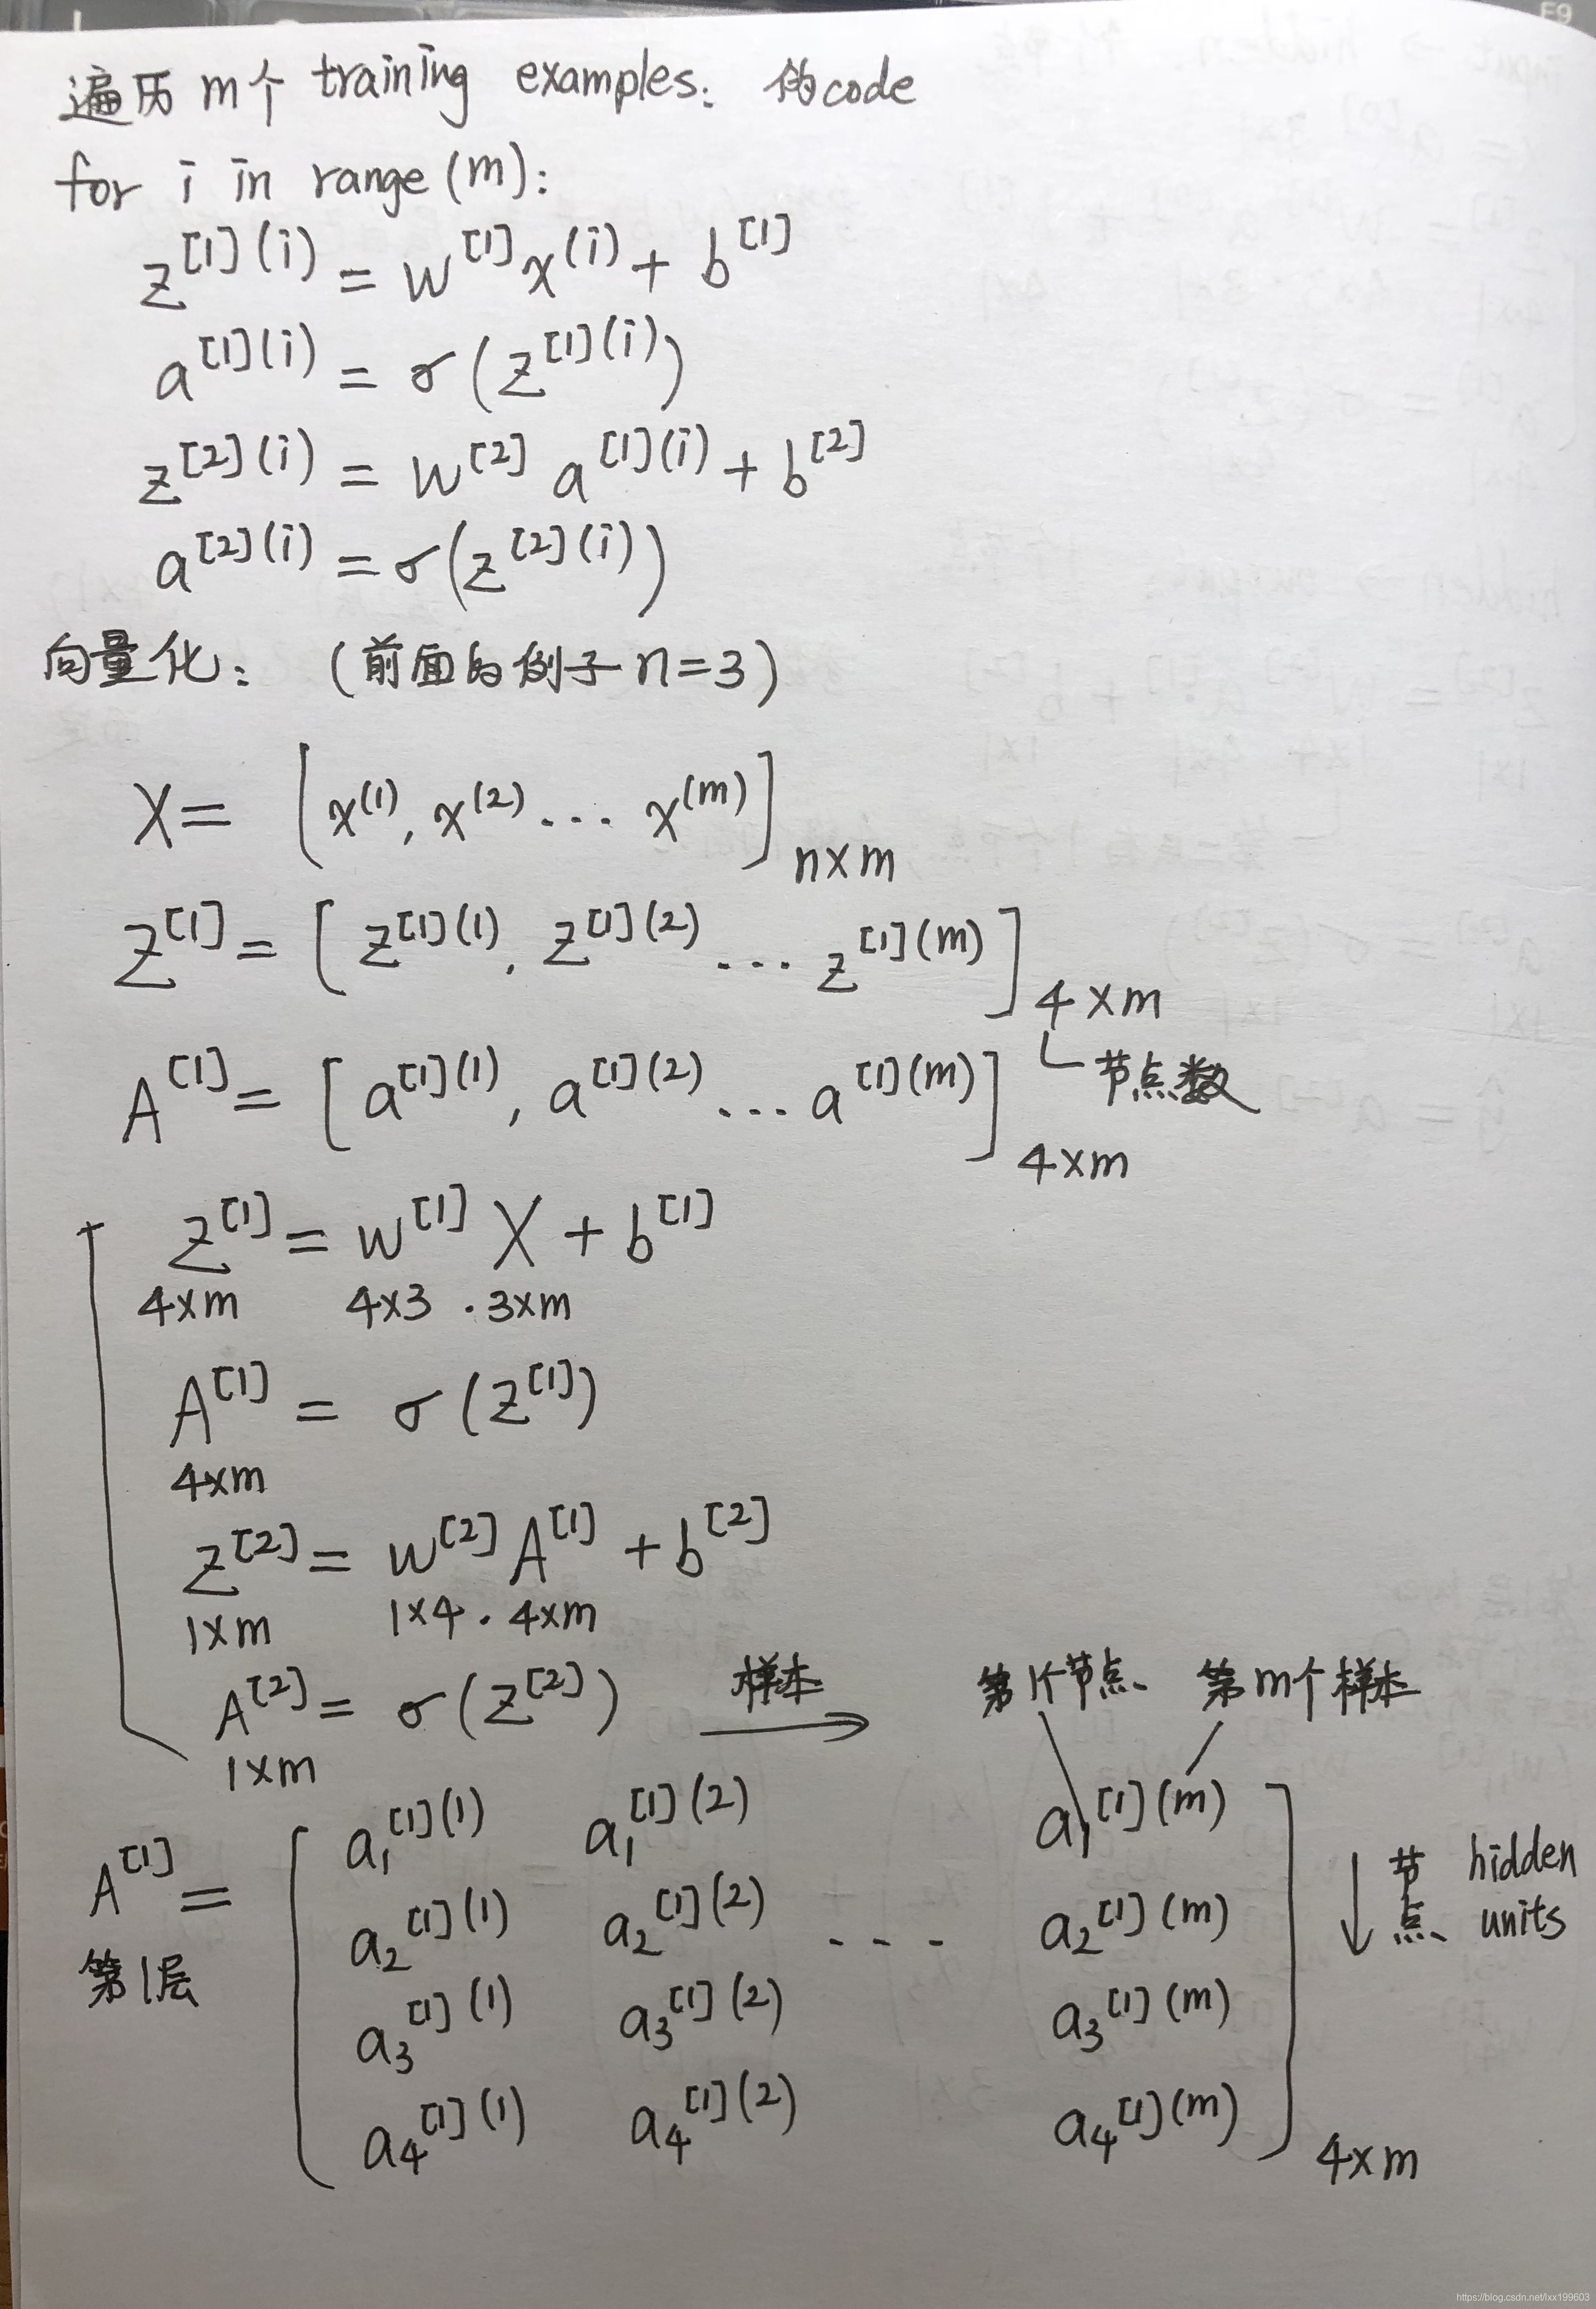 遍历 m个 training examples: 伪code
for i in range(m):
z^[1](i) = w^[1] x^(i) + b^[1]
a^[1](i) = σ(z^[1](i))
z^[2](i) = w^[2] a^[1](i) + b^[2]
a^[2](i) = σ(z^[2](i))
向量化: (前面的例子 n=3)
X = [x^(1), x^(2) ... x^(m)] n×m
Z^[1] = [z^[1](1), z^[1](2) ... z^[1](m)] 4×m
节点数
A^[1] = [a^[1](1), a^[1](2) ... a^[1](m)] 4×m
Z^[1] = w^[1] X + b^[1]
4×m 4×3 · 3×m
A^[1] = σ(Z^[1])
4×m
Z^[2] = w^[2] A^[1] + b^[2]
1×m 1×4 · 4×m
A^[2] = σ(Z^[2])
1×m
样本 → 第1个节点 第m个样本
A^[1] = [ a₁^[1](1) a₁^[1](2) a₁^[1](m)
a₂^[1](1) a₂^[1](2) --- a₂^[1](m)
a₃^[1](1) a₃^[1](2) a₃^[1](m)
a₄^[1](1) a₄^[1](2) a₄^[1](m) ] 4×m
第1层
↓ 节点 hidden units
F9
https://blog.csdn.net/lxx199603